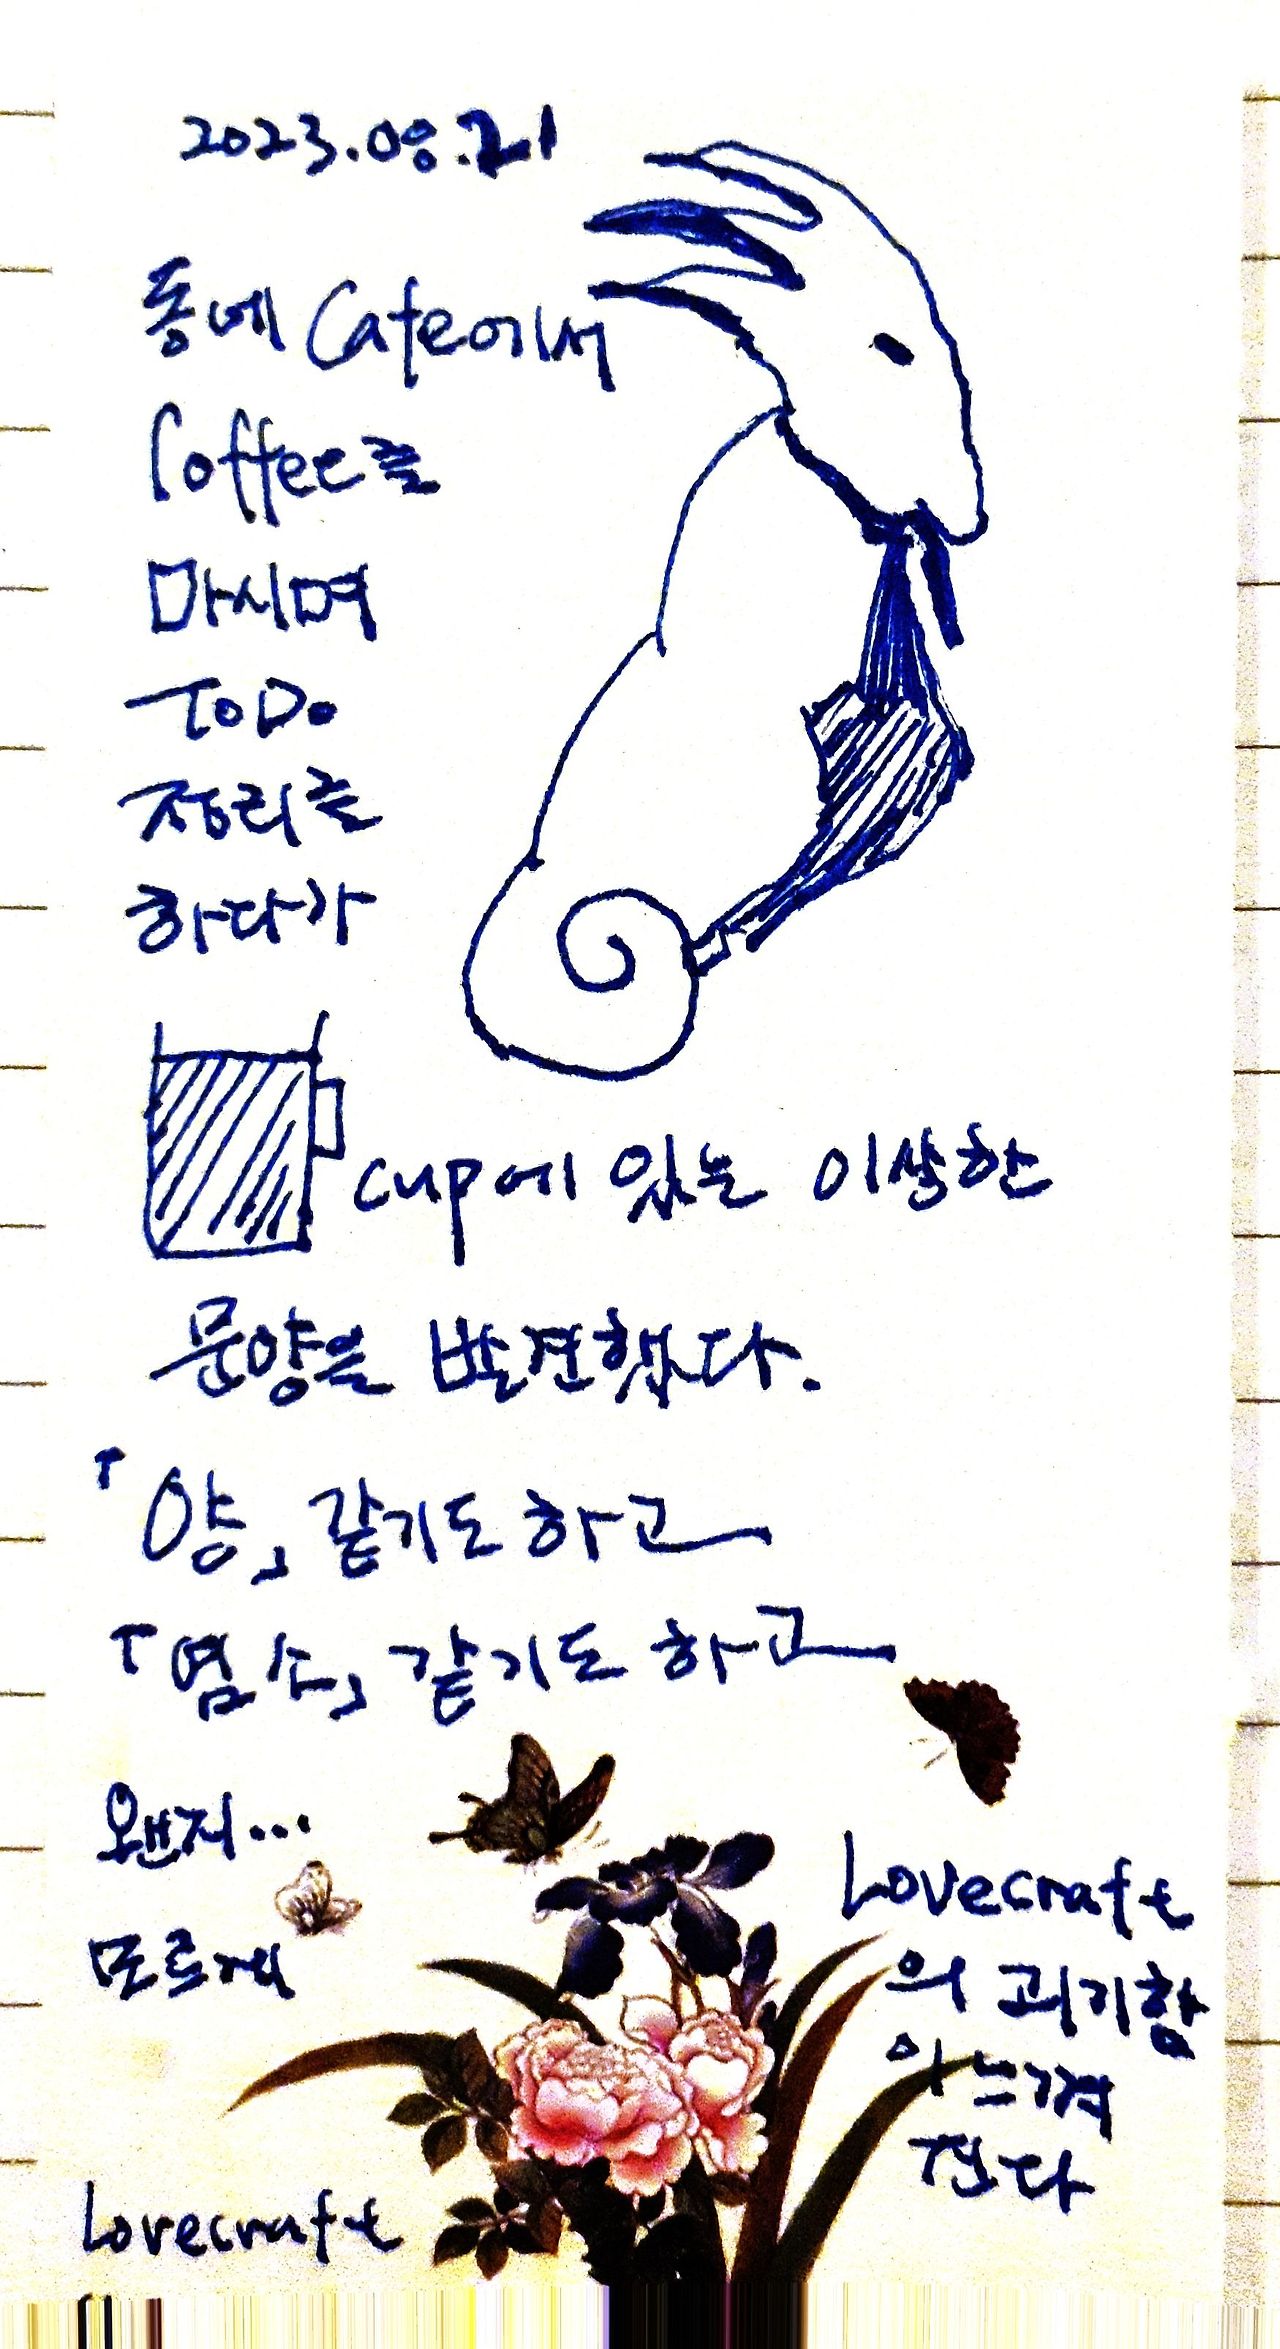 2023.08.21
동네 Cafe에서
Coffee를
마시며
ToDo
정리를
하다가
cup에 있는 이상한
문양을 발견했다.
「양」 같기도 하고
「염소」 같기도 하고
왠지...
모르게
Lovecraft
의 괴기함
이 느껴
졌다
Lovecraft